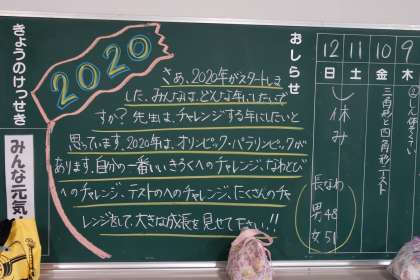 きょうのけっせき
みんな元気
2020
さぁ、2020年がスタートしま
した。みんなは、どんな年にしたいで
すか？先生は、チャレンジする年にしたいと
思っています。2020年は、オリンピック・パラリンピックが
あります。自分の一番いいきろくへのチャレンジ、なわとび
へのチャレンジ、テストのへのチャレンジ、たくさんのチャ
レンジをして、大きな成長を見せて下さい！！
おしらせ
12 11 10 9
日 土 金 木
休み
長なわ
男 48
女 51
三角形と四角形テスト